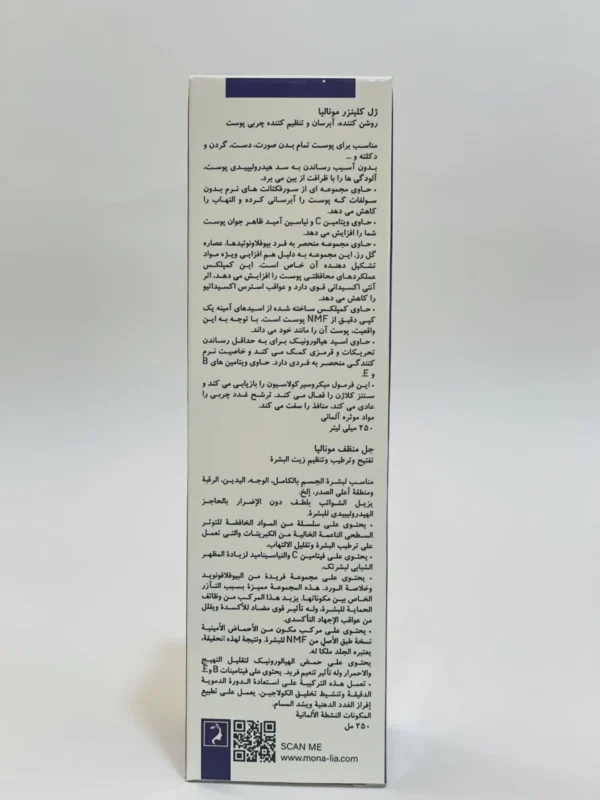 ژل کلینزر مونالیا
روشن کننده، آبرسان و تنظیم کننده چربی پوست
مناسب برای پوست تمام بدن صورت، دست، گردن و
دکلته و ...
بدون آسیب رساندن به سد هیدرولیپیدی پوست،
آلودگی ها را با ظرافت از بین می برد.
• حاوی مجموعه ای از سورفکتانت های نرم بدون
سولفات که پوست را آبرسانی کرده و التهاب را
کاهش می دهد.
• حاوی ویتامین C و نیاسین آمید ظاهر جوان پوست
شما را افزایش می دهد.
• حاوی مجموعه منحصر به فرد بیوفلاونوئیدها، عصاره
گل رز. این مجموعه به دلیل هم افزایی ویژه مواد
تشکیل دهنده آن خاص است. این کمپلکس
عملکردهای محافظتی پوست را افزایش می دهد، اثر
آنتی اکسیدانی قوی دارد و عواقب استرس اکسیداتیو
را کاهش می دهد.
• حاوی کمپلکس ساخته شده از اسیدهای آمینه یک
کپی دقیق از NMF پوست است. با توجه به این
واقعیت، پوست آن را مانند خود می داند.
• حاوی اسید هیالورونیک برای به حداقل رساندن
تحریکات و قرمزی کمک می کند و خاصیت نرم
کنندگی منحصر به فردی دارد. حاوی ویتامین های B
و E.
• این فرمول میکروسیرکولاسیون را بازیابی می کند و
سنتز کلاژن را فعال می کند. ترشح غدد چربی را
عادی می کند، منافذ را سفت می کند.
مواد موثره آلمانی
۲۵۰ میلی لیتر
جل منظف مونالیا
تفتیح وترطیب وتنظیم زیت البشرة
مناسب لبشرة الجسم بالکامل، الوجه، الیدین، الرقبة
ومنطقة أعلی الصدر، إلخ.
یزیل الشوائب بلطف دون الإضرار بالحاجز
الهیدرولیبیدی للبشرة.
• یحتوی علی سلسلة من المواد الخافضة للتوتر
السطحی الناعمة الخالیة من الکبریتات والتی تعمل
علی ترطیب البشرة وتقلیل الالتهاب.
• یحتوی علی فیتامین C والنیاسینامید لزیادة المظهر
الشبابی لبشرتک.
• یحتوی علی مجموعة فریدة من البیوفلافونوید
وخلاصة الورد. هذه المجموعة ممیزة بسبب التآزر
الخاص بین مکوناتها. یزید هذا المرکب من وظائف
الحمایة للبشرة، وله تأثیر قوی مضاد للأکسدة ویقلل
من عواقب الإجهاد التأکسدی.
• یحتوی علی مرکب مکون من الأحماض الأمینیة
نسخة طبق الأصل من NMF للبشرة. ونتیجة لهذه الحقیقة،
یعتبره الجلد ملکا له.
یحتوی علی حمض الهیالورونیک لتقلیل التهیج
والاحمرار وله تأثیر تنعیم فرید. یحتوی علی فیتامینات B وE.
• تعمل هذه الترکیبة علی استعادة الدورة الدمویة
الدقیقة وتنشیط تخلیق الکولاجین. یعمل علی تطبیع
إفراز الغدد الدهنیة ویشد المسام.
المکونات النشطة الألمانیة
۲۵۰ مل
SCAN ME
www.mona-lia.com